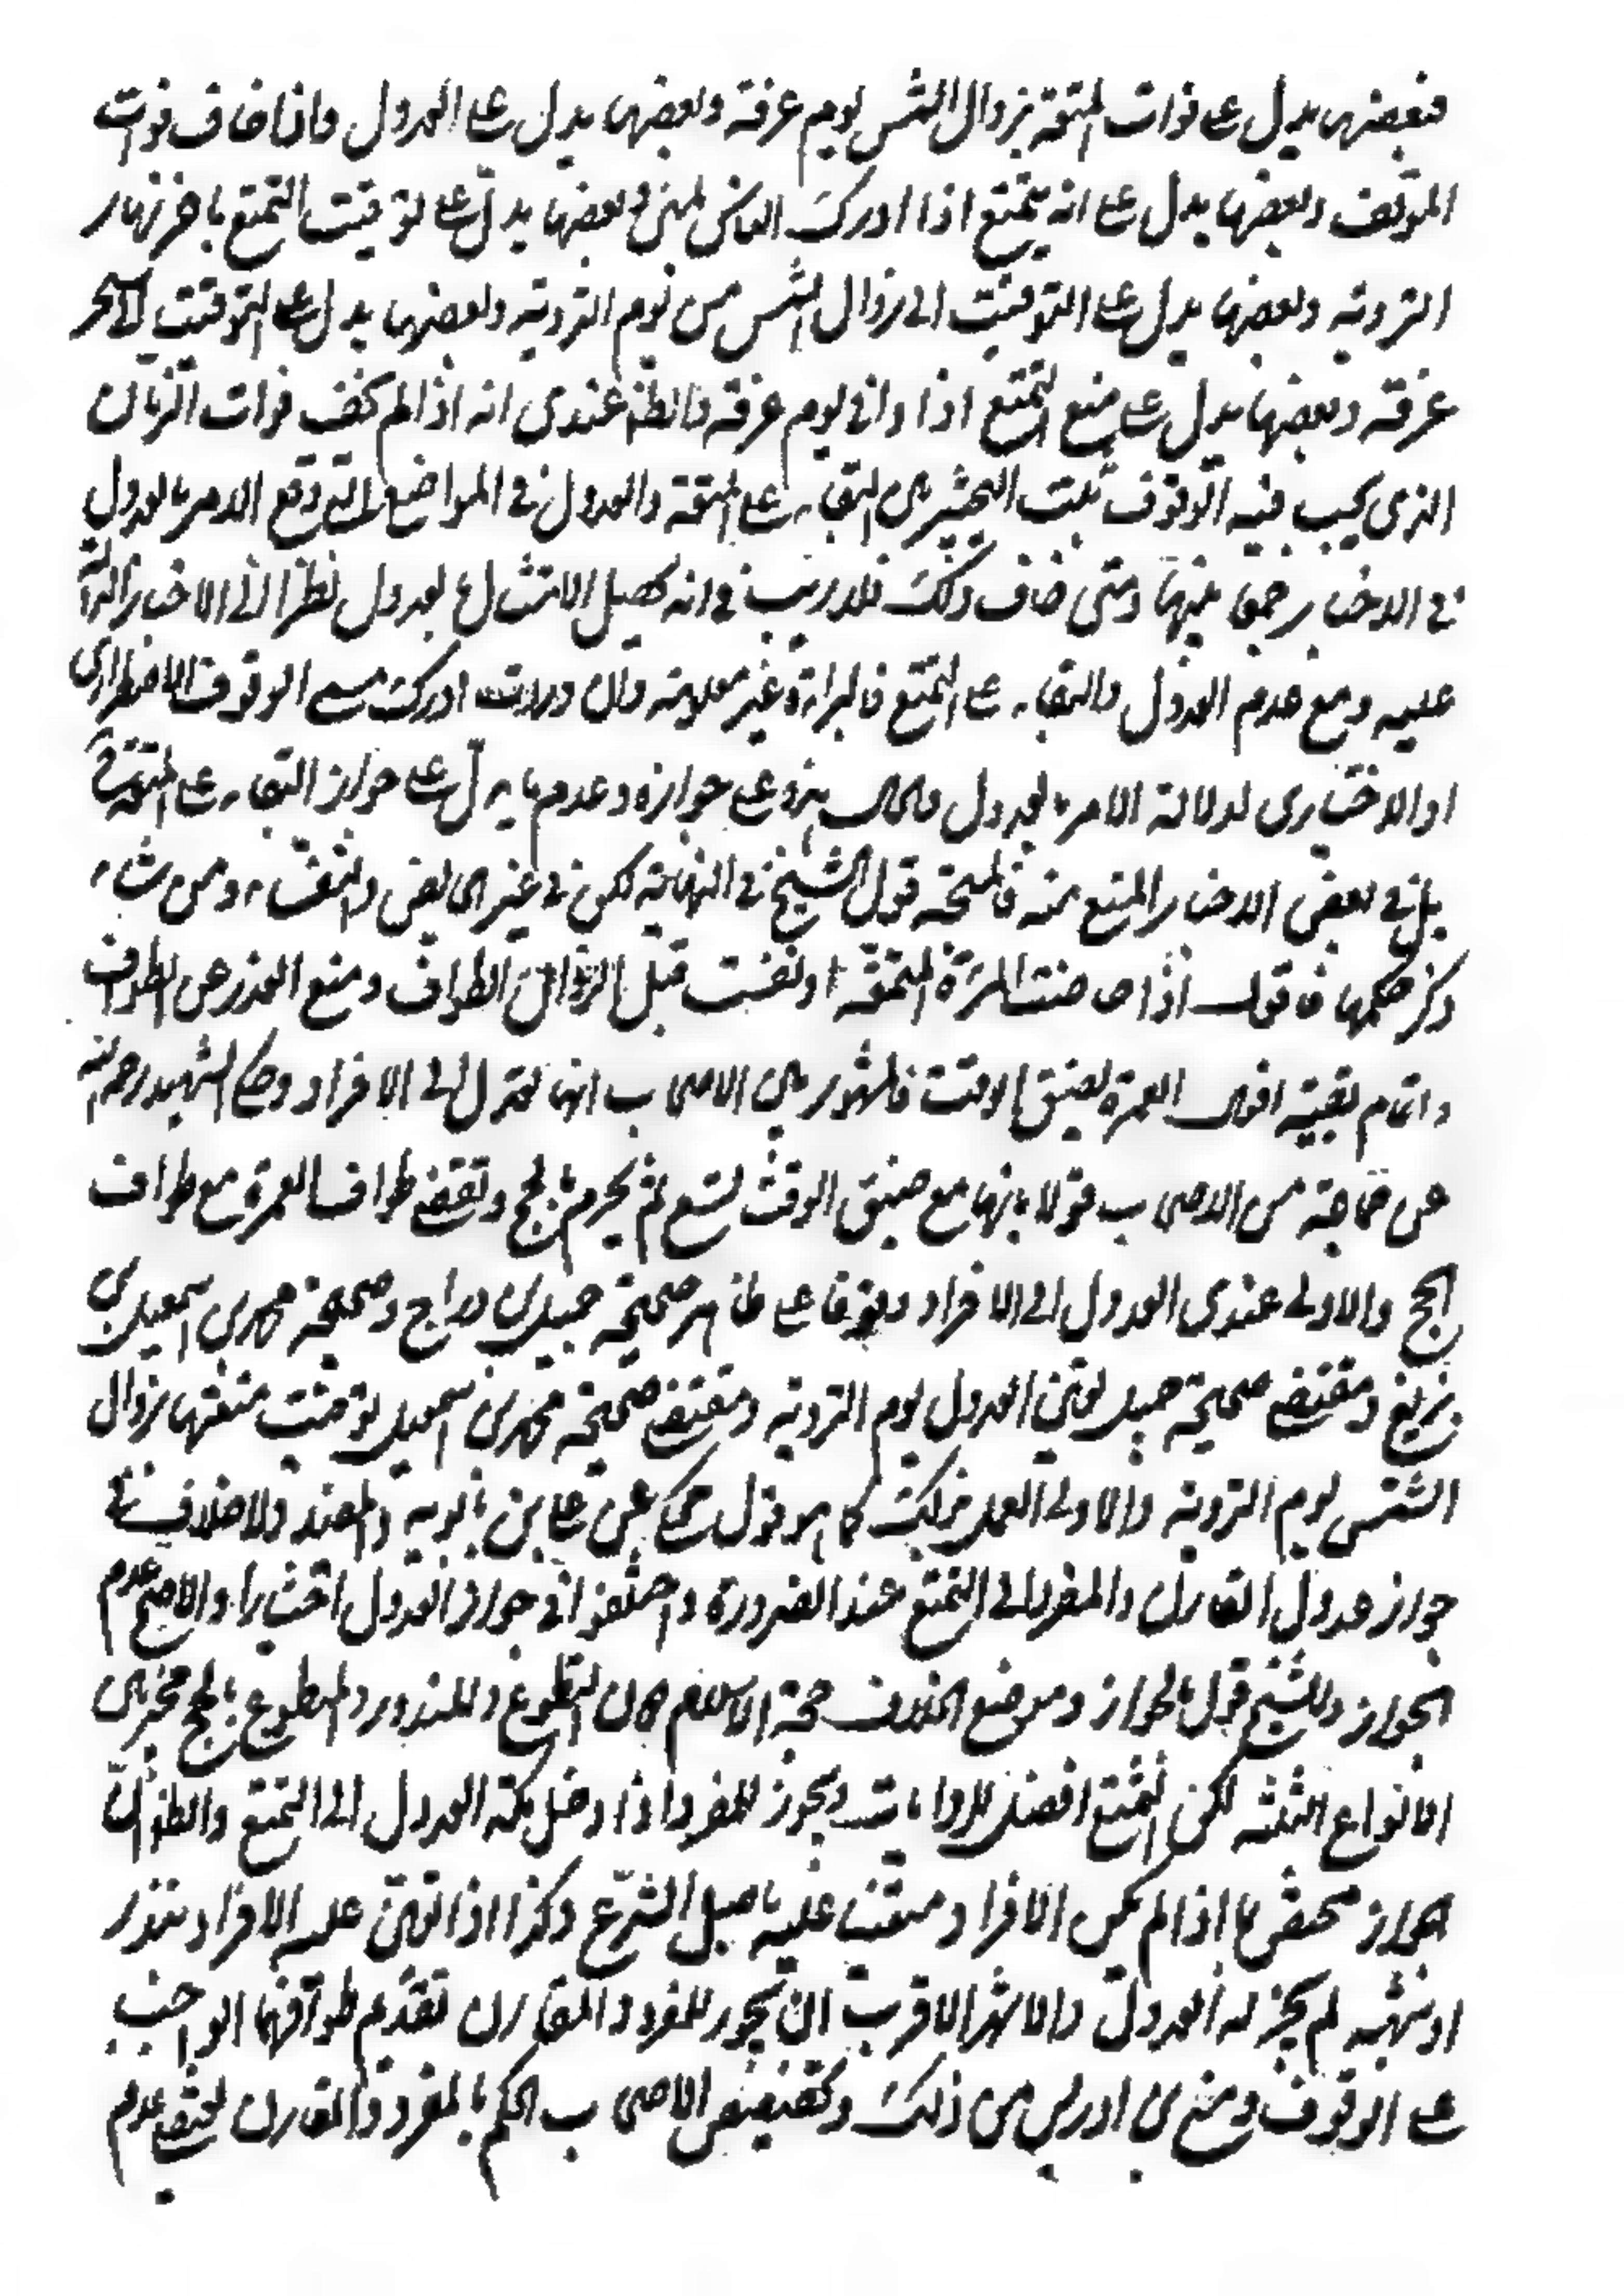 فبعضها يدل على فوات المتعة بزوال الشمس يوم عرفة وبعضها يدل على العدول واذا خاف فوات
الموقف وبعضها يدل على انه يتمتع اذا ادرك الناس بمنى وبعضها يدل على توقيت التمتع باخر نهار
التروية وبعضها يدل على التوقيت الى زوال الشمس من يوم التروية وبعضها يدل على التوقيت الى سحر
عرفة وبعضها يدل على منع التمتع اذا وافى يوم عرفة والظ عندى انه اذا لم يخف فوات الزمان
الذى يجب فيه الوقوف ثبت التخيير بين البقاء على المتعة والعدول فى المواضع التى وقع الامر بالعدول
فى الاخبار جمعا بينها ومتى خاف ذلك فلا ريب فى انه يحصل الامتثال بالعدول نظرا الى الاخبار الدالة
عليه ومع عدم العدول والبقاء على التمتع فالبراءة غير معلومة وان ادركت مسمى الوقوف الاضطرارى
او الاختيارى لدلالة الامر بالعدول على جوازه وعدم ما يدل على جواز البقاء على المتعة
بل فى بعض الاخبار المنع منه فالمتجه قول الشيخ فى النهاية لكن فى غير الحايض والنفساء ومن شاء
ذكر حكمها فاقول اذا حاضت المراة المتمتعة او نفست قبل الطواف ومنع العذر عن الطواف
واتمام بقية افعال العمرة لضيق الوقت فالمشهور بين الاصحاب انها تعدل الى الافراد وحكى الشهيد رحمه الله
عن جماعة من الاصحاب قولا بانها مع ضيق الوقت تسعى ثم يحرم بالحج وتقضى طواف العمرة مع طواف
الحج والاولى عندى العدول الى الافراد وقوفا على ظاهر صحيحة جميل بن دراج وصحيحة محمد بن اسمعيل بن
بزيع ومقتضى صحيحة جميل تعين العدول يوم التروية ومقتضى صحيحة محمد بن اسمعيل توقيت متعتها بزوال
الشمس يوم التروية والاولى العمل بذلك كما هو قول محكى عن على بن بابويه والمفيد ولا خلاف فى
جواز عدول القارن والمفرد الى التمتع عند الضرورة واختلفوا فى جواز العدول اختيارا والاصح عدم
الجواز وللشيخ قول بالجواز وموضع الخلاف حجة الاسلام دون التطوع والمنذور والمتطوع بالحج مخير بين
الانواع الثلثة لكن التمتع افضل للروايات ويجوز للمفرد اذا دخل مكة العدول الى التمتع والظ ان
الجواز مختص بما اذا لم يكن الافراد متعينا عليه باصل الشرع وكذا اذا تعين عليه الافراد بنذر
او شبهه لم يجز له العدول والاشهر الاقرب انه يجوز للمفرد والقارن تقديم طوافهما الواجب
على الوقوف ومنع ابن ادريس من ذلك وتخصيص الاصحاب الحكم بالمفرد والقارن يقتضى عدم